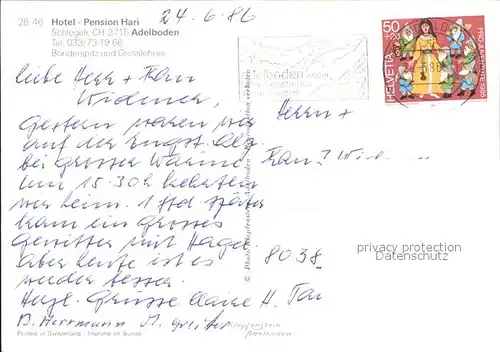 28-46 Hotel - Pension Hari
Schlegeli, CH 3715 Adelboden
Tel. 033/73 19 66
Bonderspitz und Grosslohner
24.6.86
liebe Herr + Frau
Widmer,
Gestern waren wir
auf der Engst. Alp
bei grosser Wärme
Um 15.30h kehrten
wir heim. 1 Std später
kam ein grosses
Gewitter mit Hagel.
Aber heute ist es
wieder besser.
Herzl. Grüsse Claire H.
B. Herrmann M.
Printed in Switzerland Imprimé en Suisse
Adelboden
50
+20
HELVETIA
PRO JUVENTUTE 1985
Herrn +
Frau
8038
privacy protection
Datenschutz
Klopfenstein
Adelboden